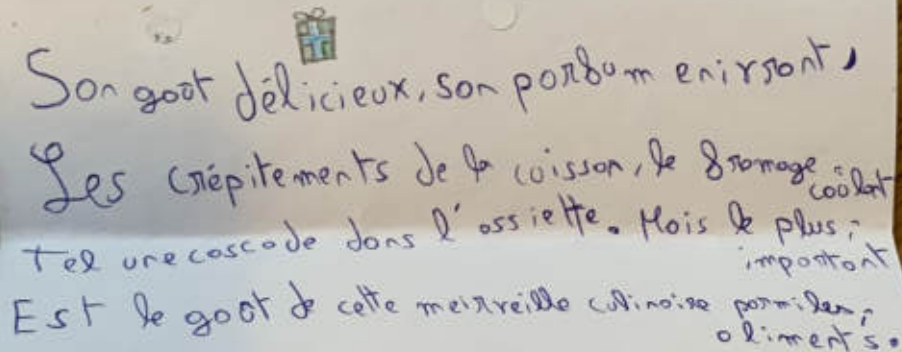 Son goût délicieux, son parfum enivrant,
Les crépitements de la cuisson, le fromage coulant
Tel une cascade dans l'assiette. Mais le plus important
Est le goût de cette merveille culinaire parmi les aliments.